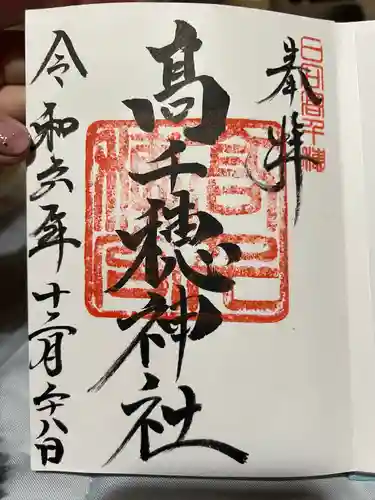 奉拝
日向高千穂
高千穂神社
令和六年十二月二十八日